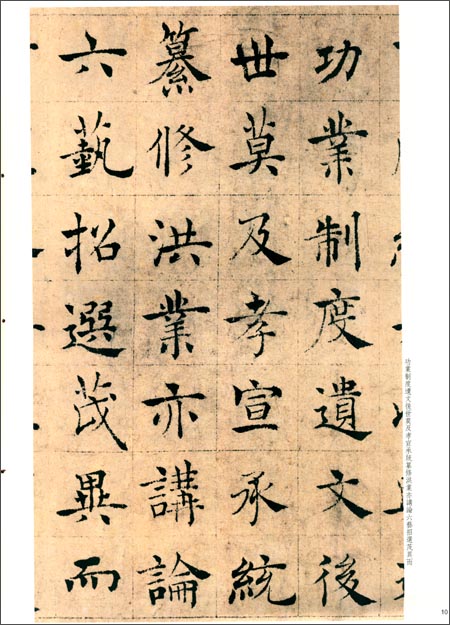 功業制度遺文後
世莫及孝宣承統
纂修洪業亦講論
六藝招選茂異而
功業制度遺文後世莫及孝宣承統纂修洪業亦講論六藝招選茂異而
10